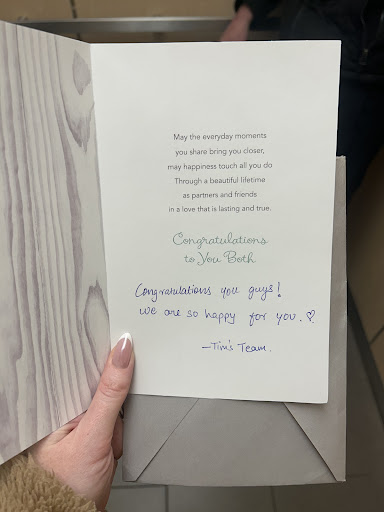 May the everyday moments
you share bring you closer,
may happiness touch all you do
Through a beautiful lifetime
as partners and friends
in a love that is lasting and true.
Congratulations
to You Both
Congratulations you guys!
we are so happy for you. ♡
—Tim's Team.